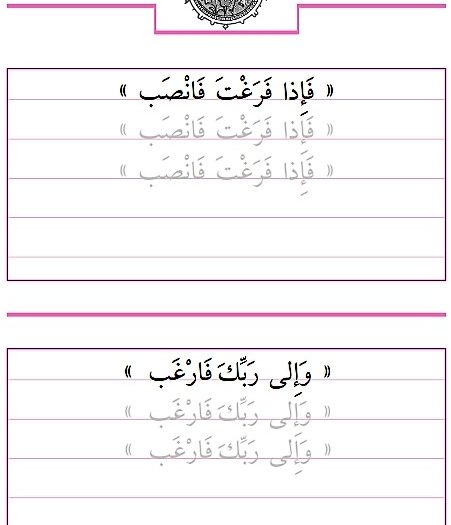 « فَإِذا فَرَغْتَ فَانْصَب »
« فَإِذا فَرَغْتَ فَانْصَب »
« فَإِذا فَرَغْتَ فَانْصَب »
« وَإِلى رَبِّكَ فَارْغَب »
« وَإِلى رَبِّكَ فَارْغَب »
« وَإِلى رَبِّكَ فَارْغَب »